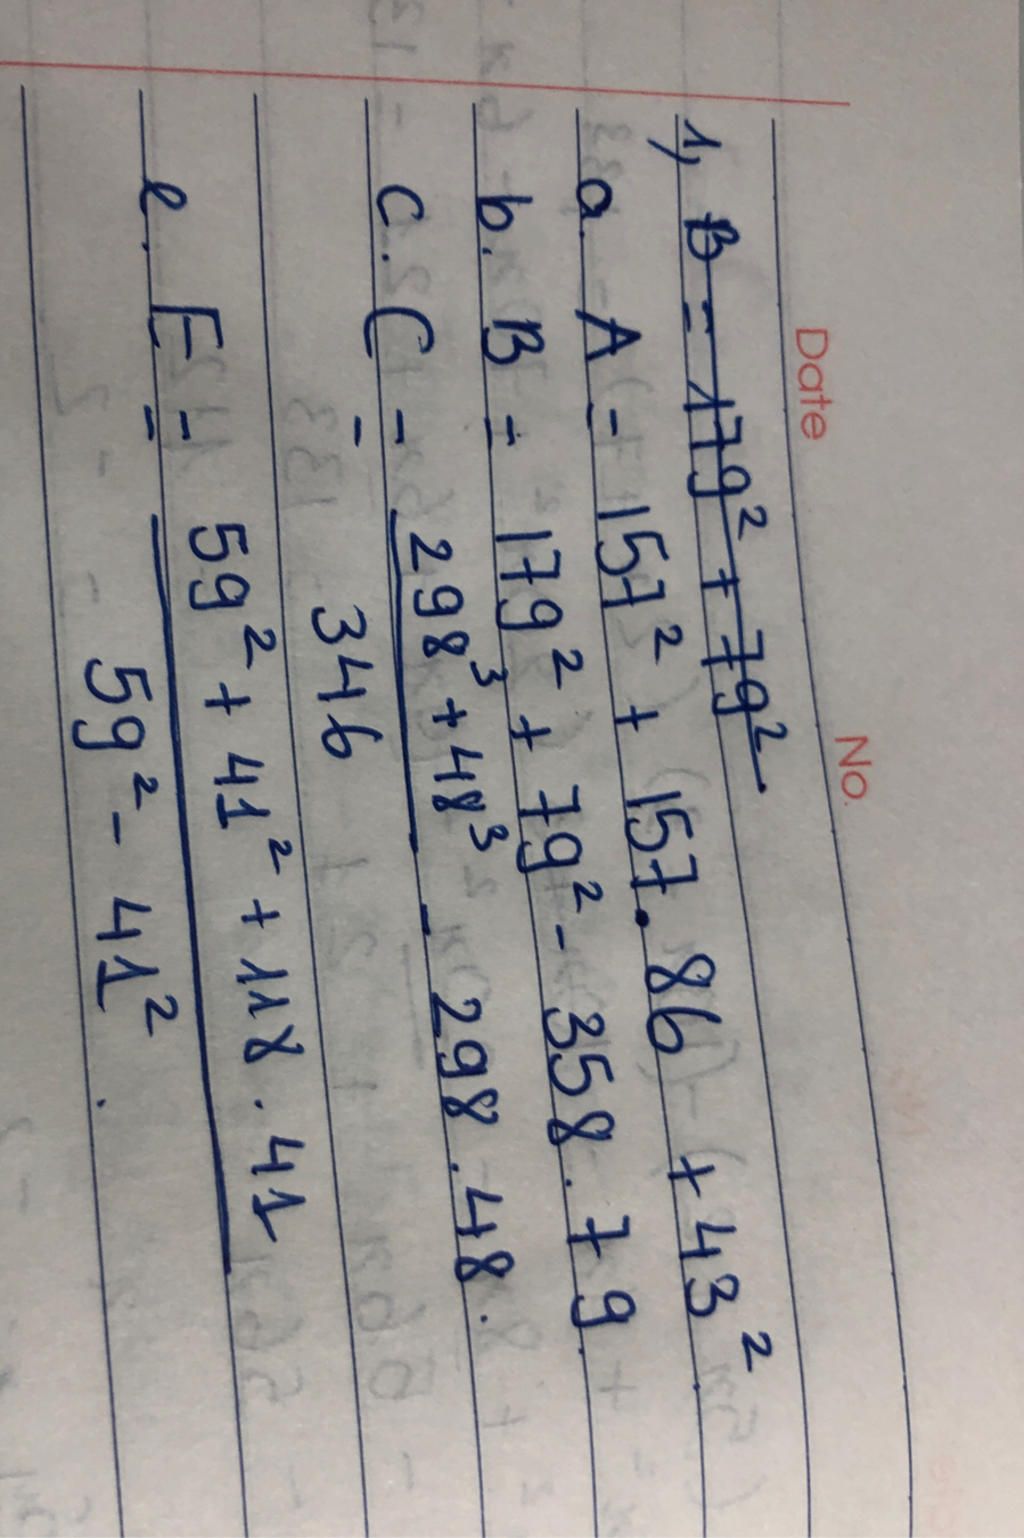 Date No.
1, B = 179² + 79²
a. A = 157² + 157 . 86 + 43²
b. B = 179² + 79² - 358 . 79
c. C = 298³ + 48³ - 298 . 48 .
346
e. E = 59² + 41² + 118 . 41
59² - 41² .